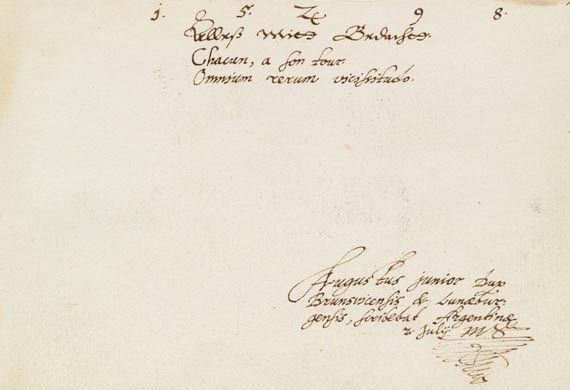 1. 5. 9 8.
Alles Mitt Bedacht.
Chacun, a son tour.
Omnium rerum vicissitudo.
Augustus junior Dux
Brunsvicensis & Lunæbur-
gensis, scribebat Argentinæ
2 July